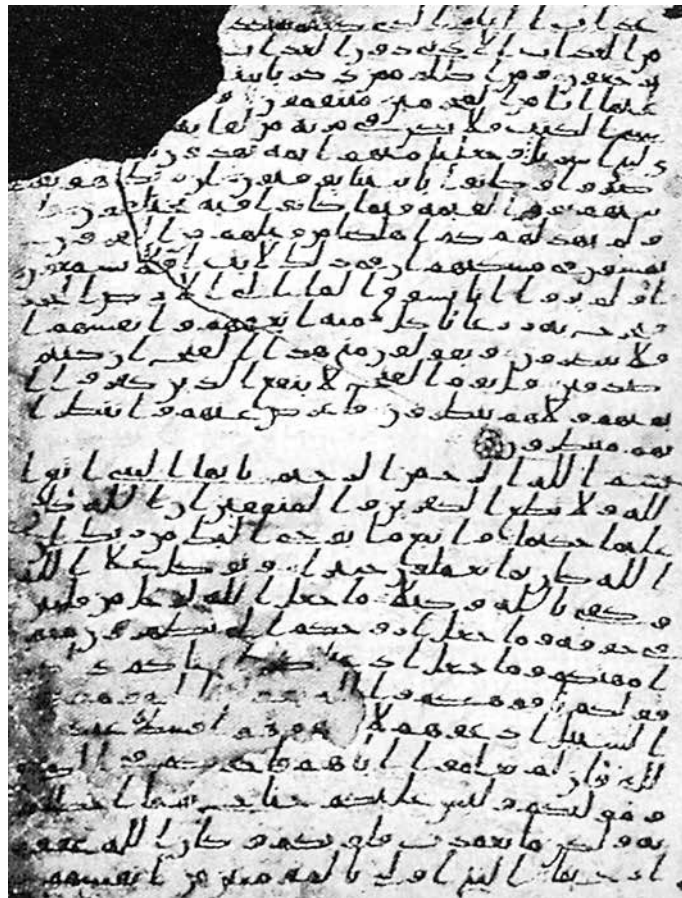 عذاب النار الذي كنتم به تكذ
من العذاب الادنى دون العذاب
يرجعون ومن اظلم ممن ذكر بايت
عنها انا من المجرمين منتقمون و
موسى الكتب فلا تكن في مرية من لقائه
لبني اسريل وجعلنا منهم ائمة يهدون
صبروا وكانوا بايتنا يوقنون ان ربك هو يفصل
بينهم يوم القيمة فيما كانوا فيه يختلفون ا
ولم يهد لهم كم اهلكنا من قبلهم من القرون
يمشون في مسكنهم ان في ذلك لايت افلا يسمعون
اولم يروا انا نسوق الما الى الارض الجرز
فنخرج به زرعا تاكل منه انعمهم وانفسهم ا
فلا يبصرون ويقولون متى هذا الفتح ان كنتم
صدقين قل يوم الفتح لا ينفع الذين كفروا ا
يمنهم ولا هم ينظرون فاعرض عنهم وانتظر ا
نهم منتظرون
بسم الله الرحمن الرحيم يايها النبي اتق ا
لله ولا تطع الكفرين والمنفقين ان الله كان
عليما حكيما واتبع ما يوحى اليك من ربك ان
الله كان بما تعملون خبيرا وتوكل على الله
وكفى بالله وكيلا ما جعل الله لرجل من قلبين
في جوفه وما جعل ازوجكم الي تظهرون منهن
امهتكم وما جعل ادعياكم ابناكم
قولكم بافوهكم والله يقول الحق وهو
السبيل ادعوهم لا هو اقسط عند
الله فان لم تعلموا اباهم فاخونكم في الدين
وموليكم وليس عليكم جناح فيما اخطاتم
به ولكن ما تعمدت قلوبكم وكان الله غفو
ا رحيما النبي اولى بالمومنين من انفسهم